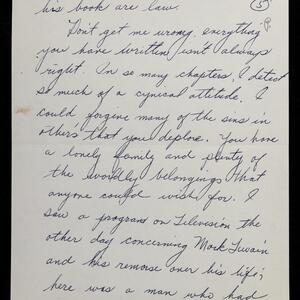 his book are law. 5
Don't get me wrong, everything
you have written isn't always
right. In so many chapters, I detect
so much of a cynical attitude. I
could forgive many of the sins in
others that you deplore. You have
a lonely family and plenty of
the worldly belongings that
anyone could wish for. I
saw a program on Television the
other day concerning Mark Twain
and his remorse over his life;
here was a man who had